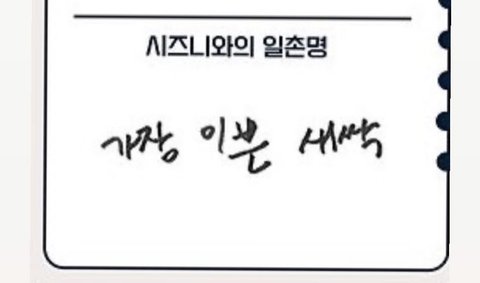 시즈니와의 일촌명
가장 이쁜 새싹